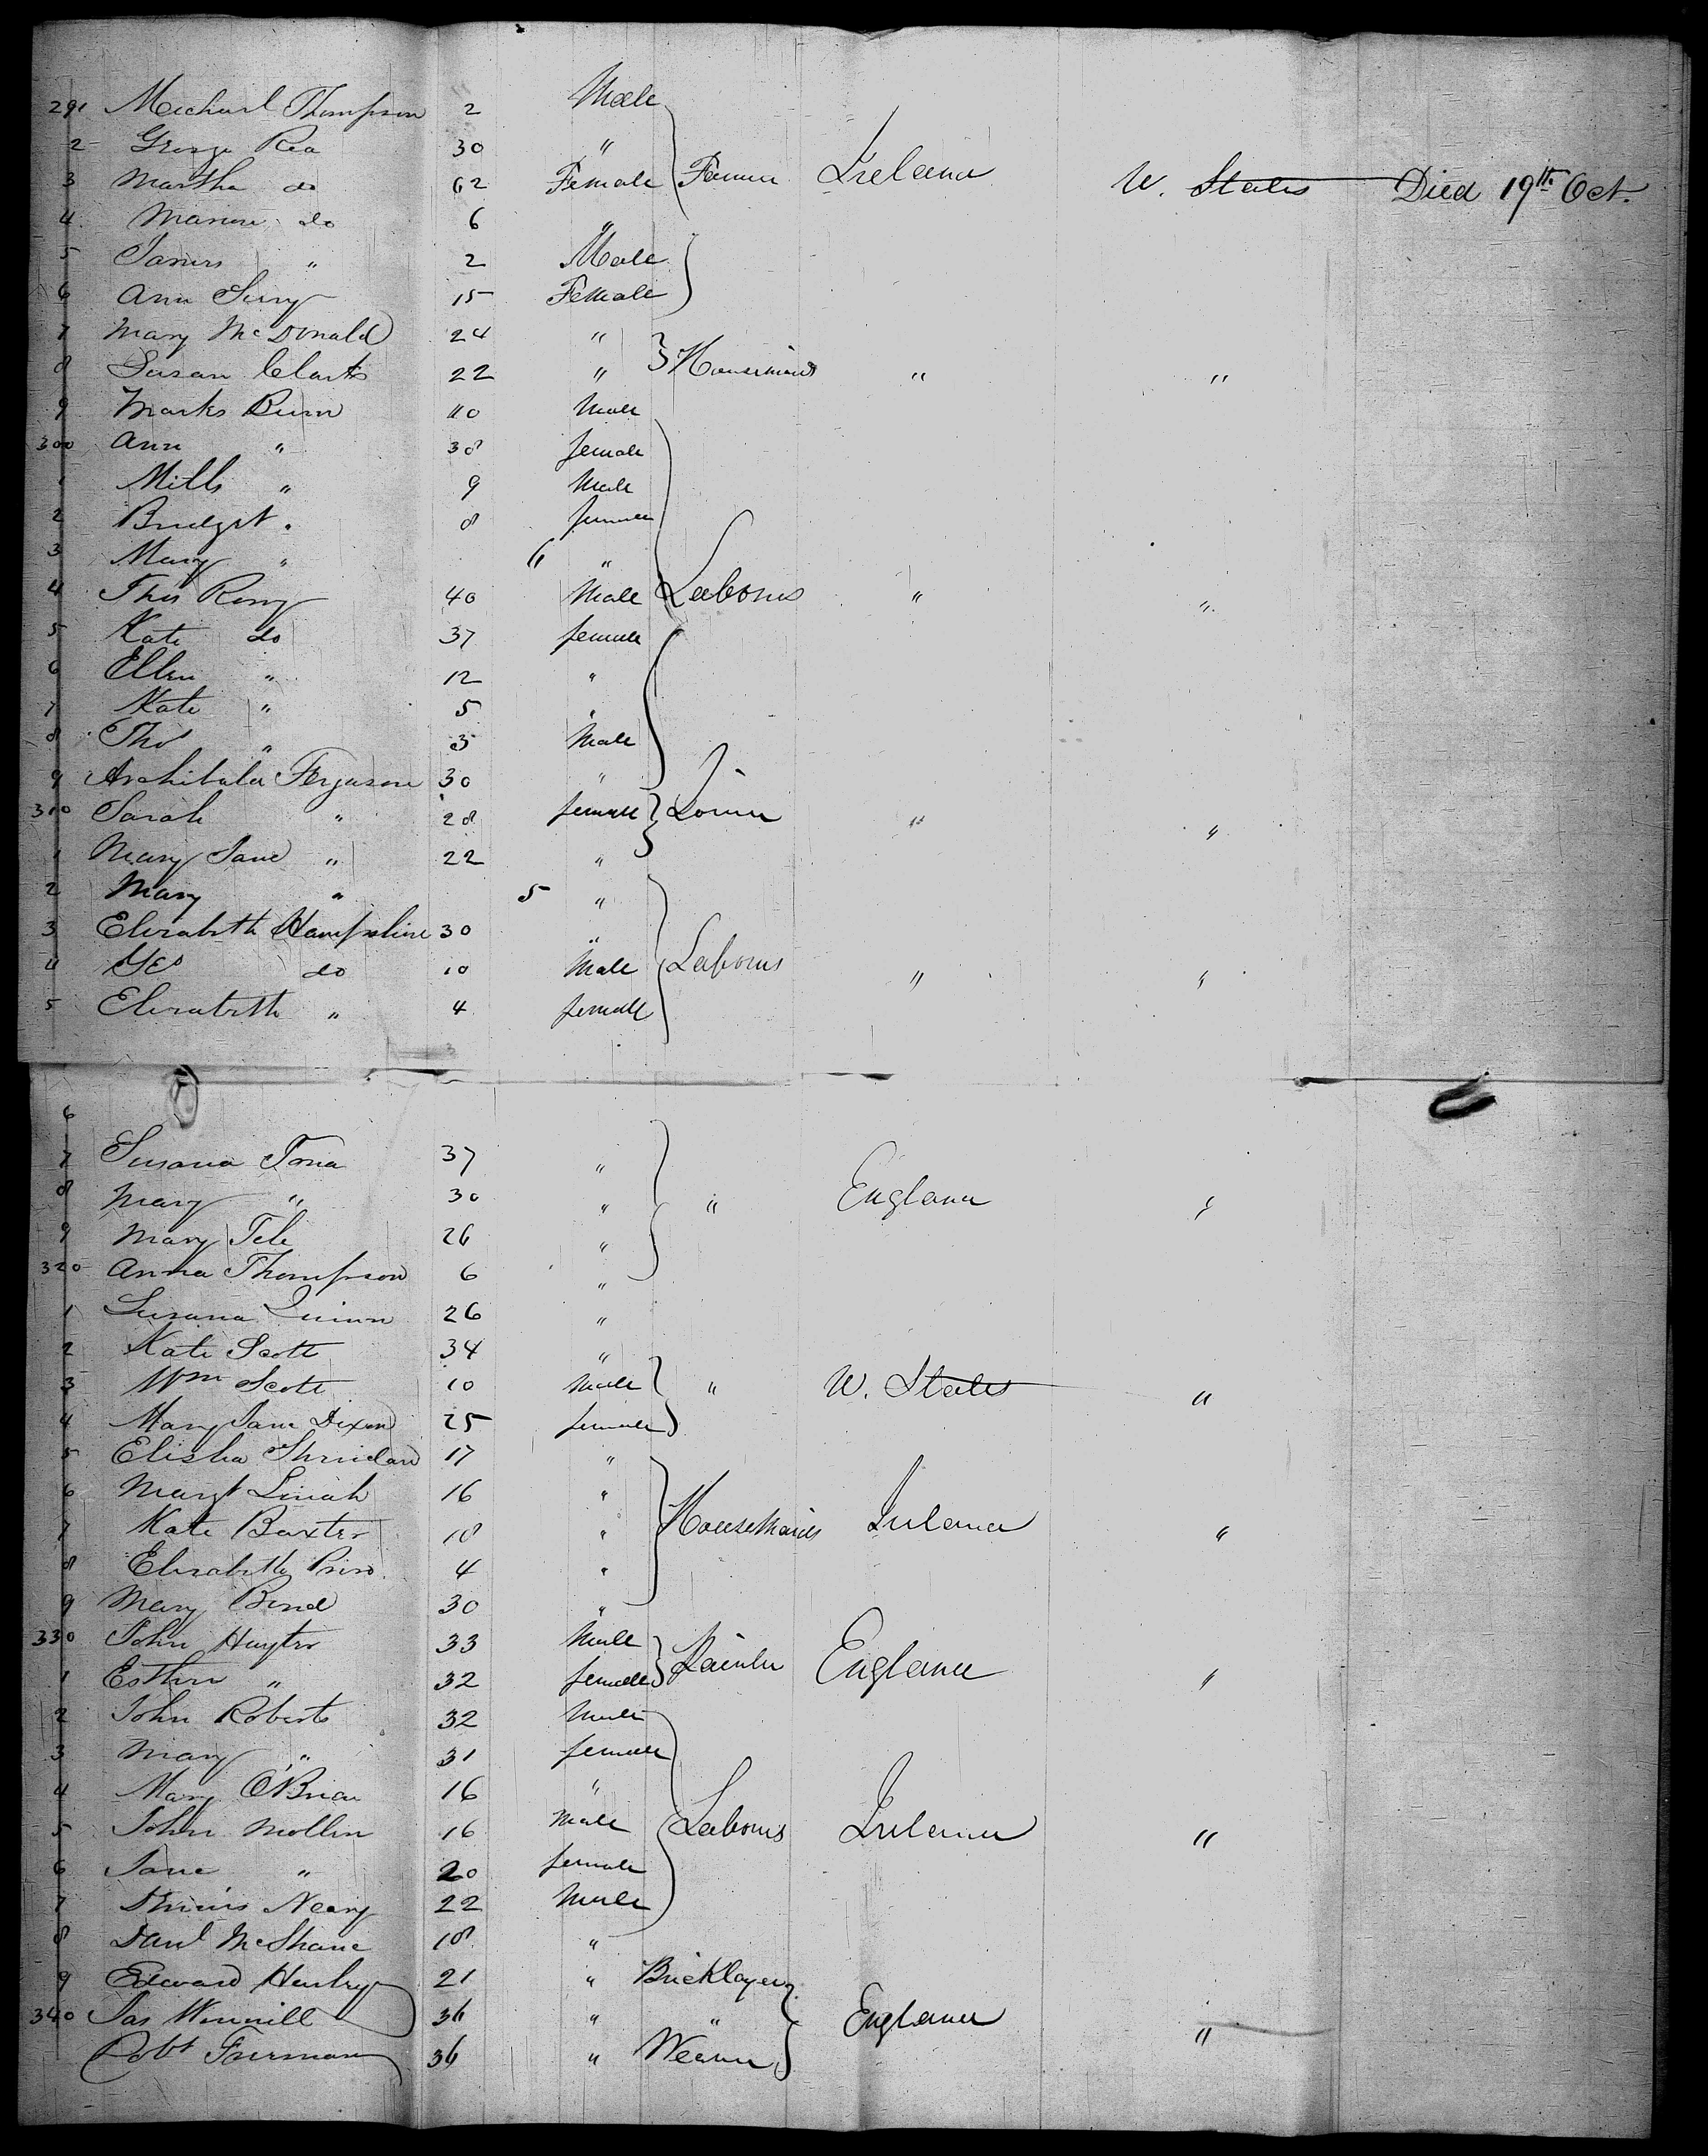 291 Michael Thompson 2 Male
2 George Rea 30 "
3 Martha do 62 Female Farmer Ireland U. States Died 19th Oct.
4 do 6 "
5 James " 2 Male
6 Ann 15 Female
7 Mary McDonald 24 "
8 Susan Clarks 22 " Housemaids " "
9 Marks Burn 40 Male
300 Ann " 38 female
1 Mills " 9 Male
2 Bridget " 8 female
3 Mary " 6 "
4 Thos Rony 40 Male Laborers " "
5 Kate do 37 female
6 Ellen " 12 "
7 Kate " 5 "
8 Thos " 3 Male
9 Archibald Ferguson 30 "
310 Sarah " 28 female " "
1 Mary Jane " 22 "
2 Mary " 5 "
3 Elizabeth Hampshire 30 "
4 Geo do 10 Male Laborers " "
5 Elizabeth " 4 female
6
7 Susana 37 "
8 Mary " 30 " " England "
9 Mary 26 "
320 Anna Thompson 6 "
1 Susana Quinn 26 "
2 Kate Scott 34 "
3 Wm Scott 10 Male " U. States "
4 Mary Jane Dixon 25 female
5 Elisha Shridan 17 "
6 Margt 16 "
7 Kate Baxter 18 " Housemaids Ireland "
8 Elizabeth 4 "
9 Mary Bond 30 "
330 John Hayter 33 Male
1 Esther " 32 female Painter England "
2 John Roberts 32 Male
3 Mary " 31 female
4 Mary O'Brian 16 "
5 John Mollen 16 Male Laborers Ireland "
6 Jane " 20 female
7 Neary 22 Male
8 Danl McShane 18 "
9 Edward Henley 21 " Bricklayer
340 Jas Winnill 36 " " England "
Robt Freeman 36 " Weaver